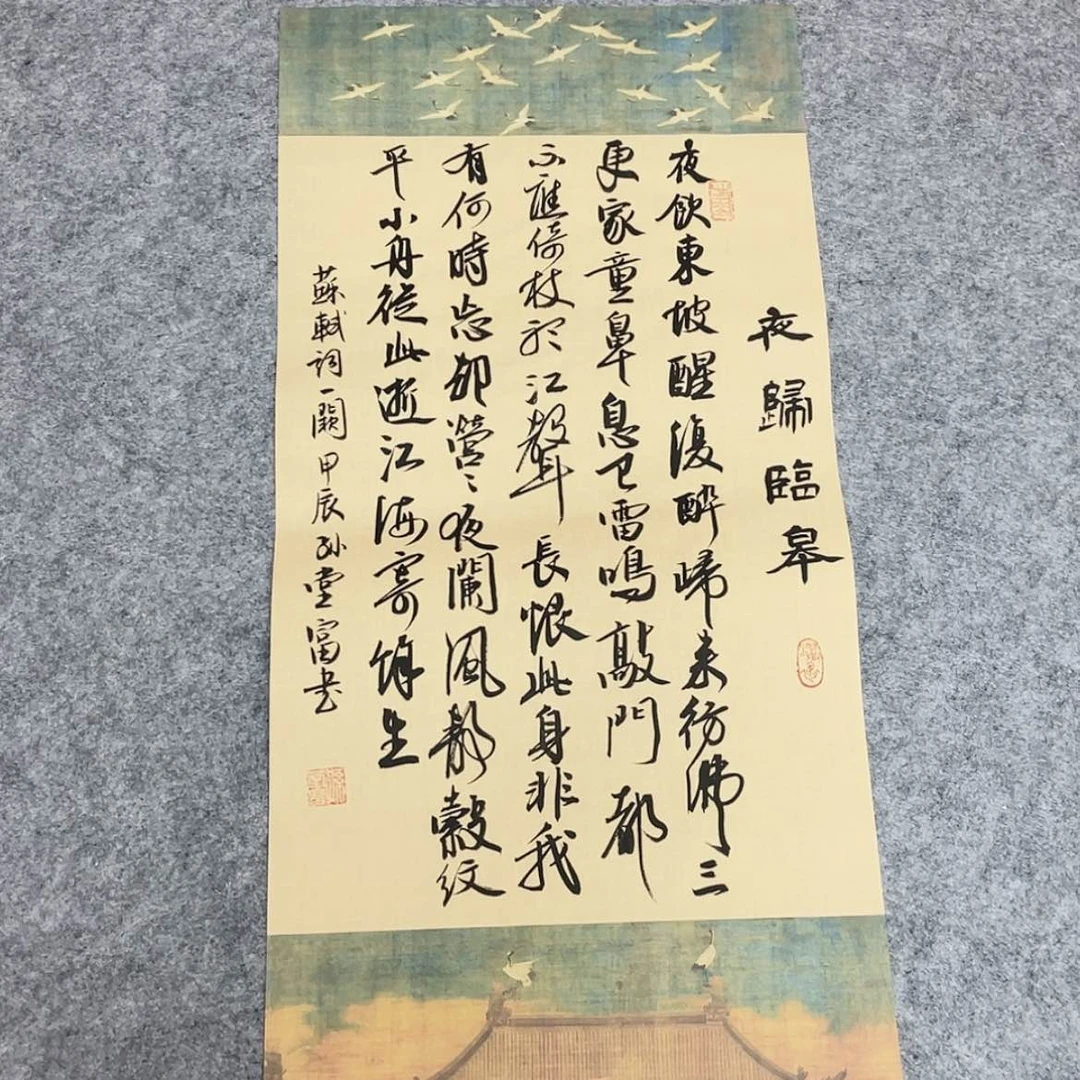 夜歸臨皋
夜飲東坡醒復醉歸来彷彿三
更家童鼻息已雷鳴敲門都
不應倚杖聽江聲長恨此身非我
有何時忘卻營〻夜闌風靜縠紋
平小舟從此逝江海寄餘生
蘇軾詞一闋甲辰孫堂富書